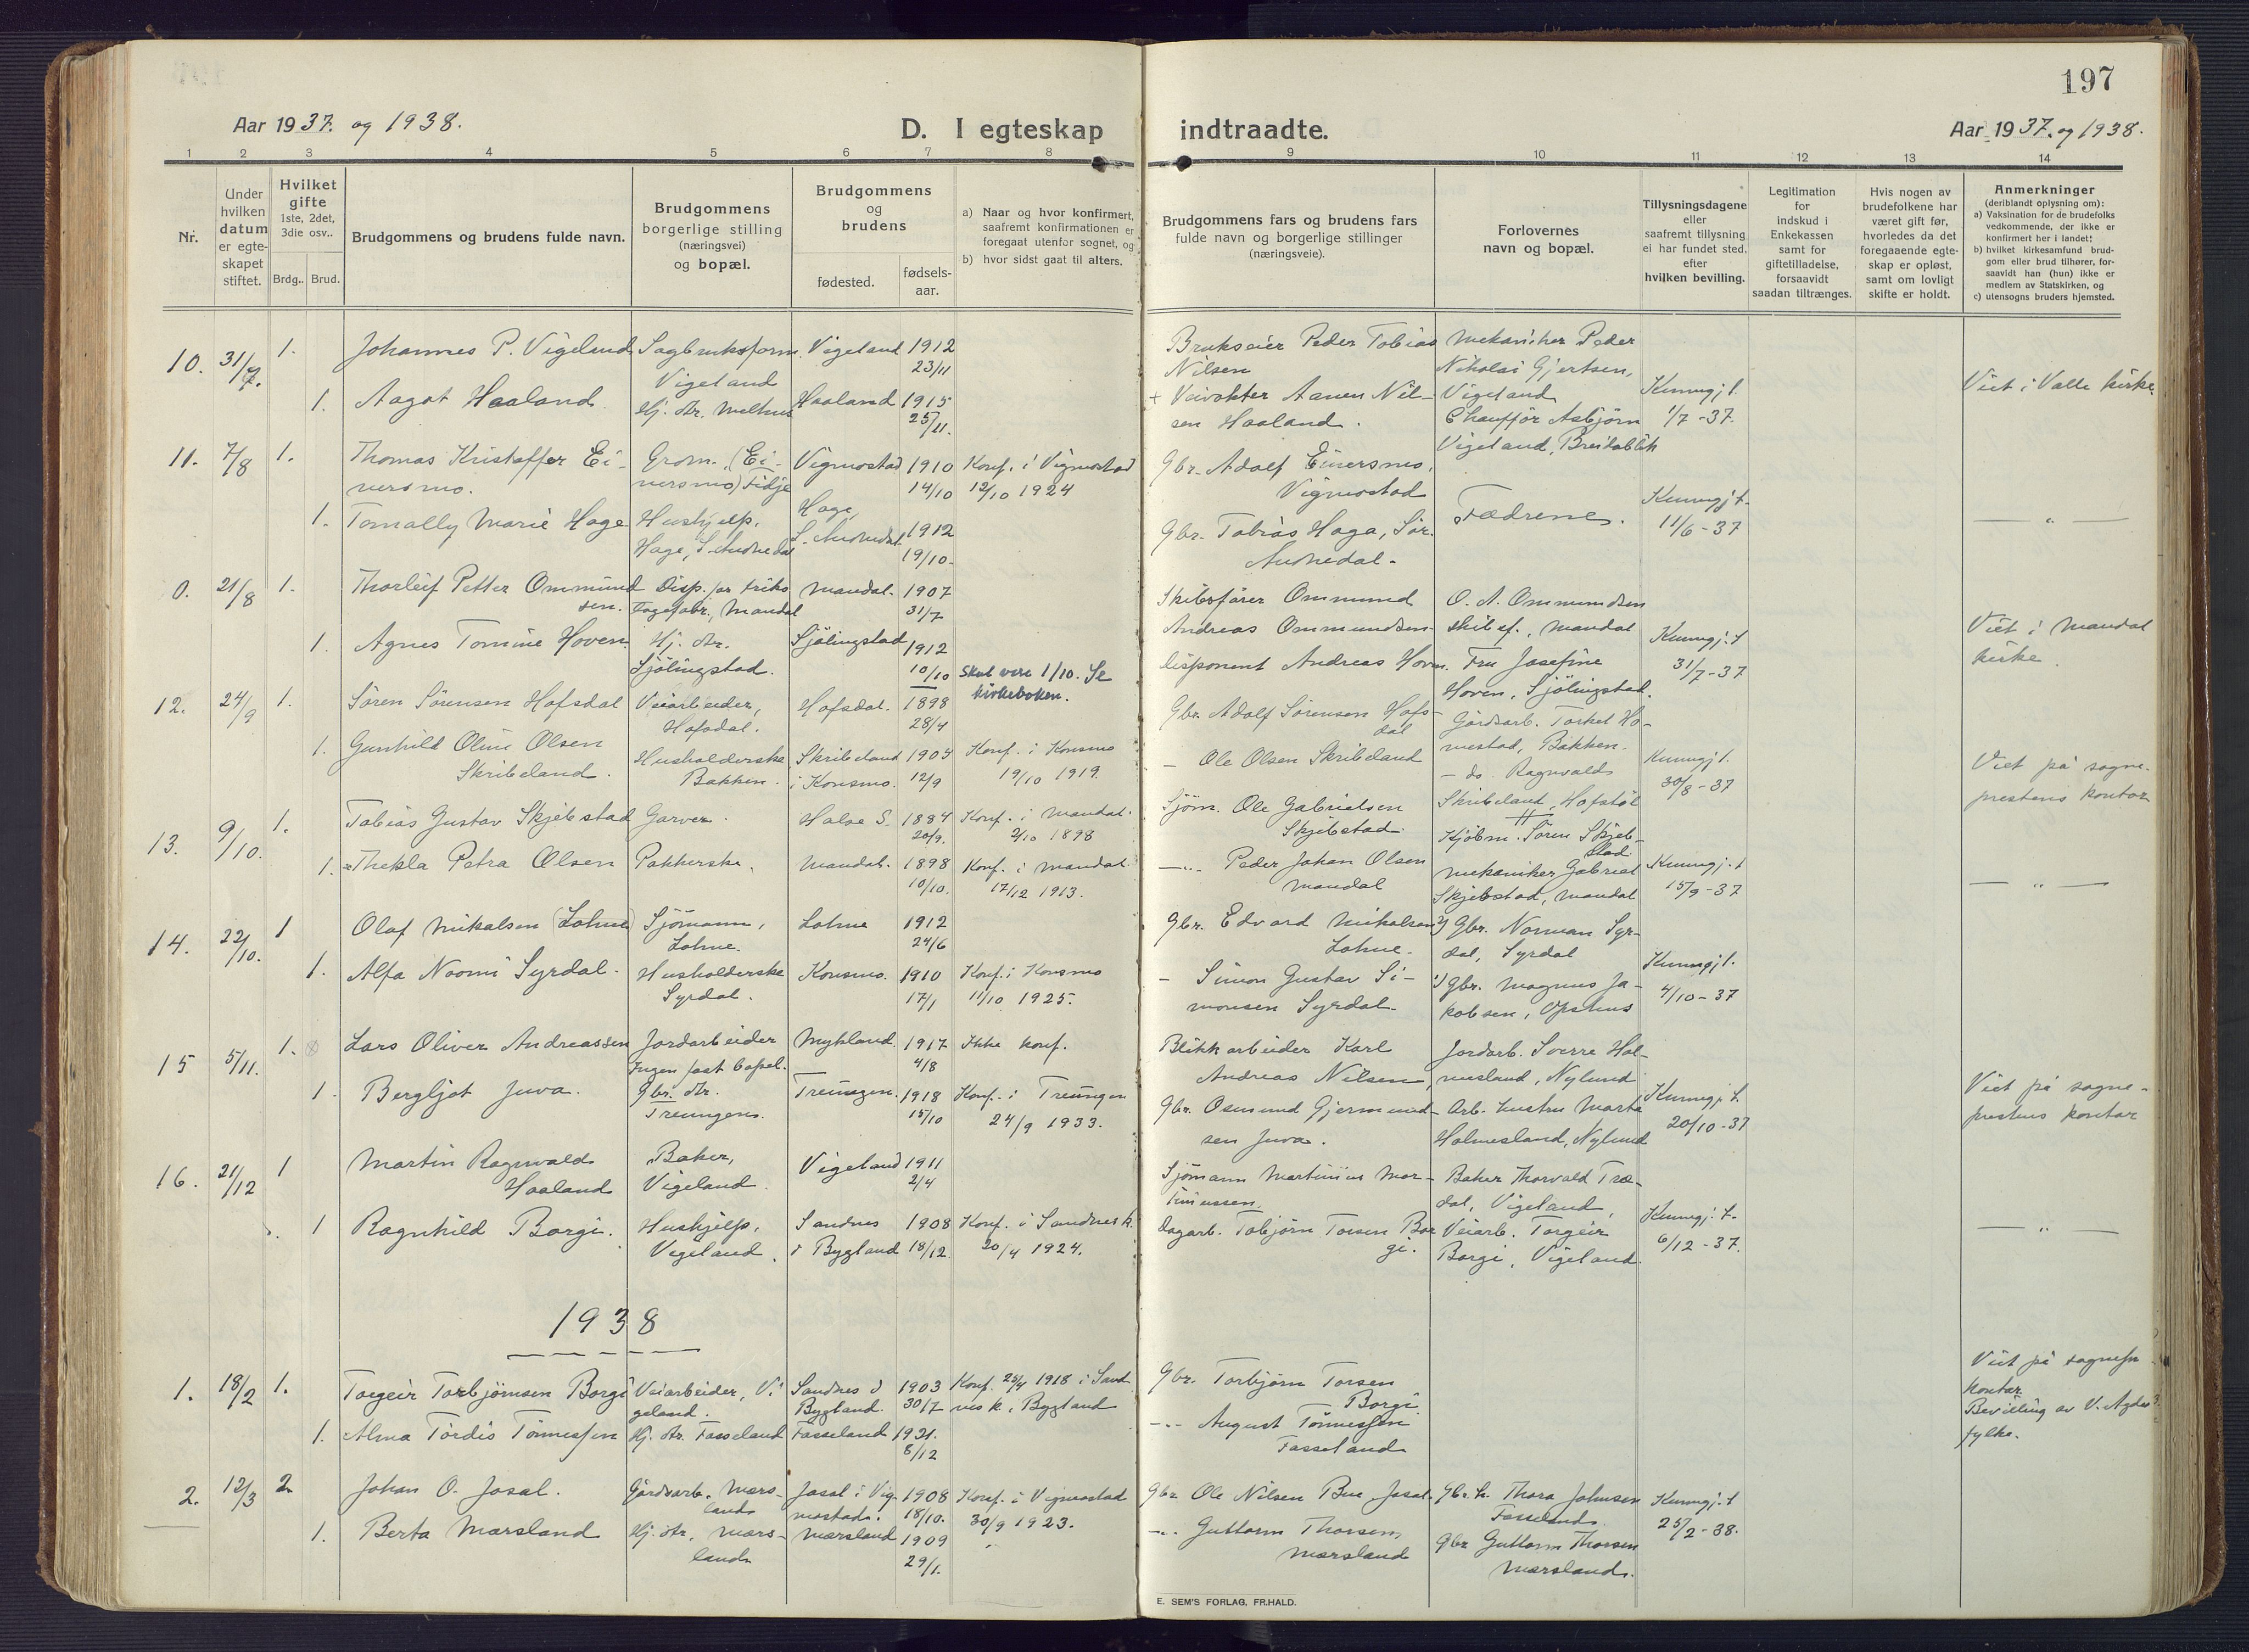 197
Aar 1937. og 1938.
D. I egteskap indtraadte.
Aar 1937. og 1938.
1 2 3 4 5 6 7 8 9 10 11 12 13 14
Nr.
Under
hvilken
datum
er egte-
skapet
stiftet.
Hvilket
gifte
1ste, 2det,
3die osv..
Brdg.. Brud.
Brudgommens og brudens fulde navn.
Brudgommens
borgerlige stilling
(næringsvei)
og bopæl.
Brudgommens
og
brudens
fødested.
fødsels-
aar.
a) Naar og hvor konfirmert,
saafremt konfirmationen er
foregaat utenfor sognet, og
b) hvor sidst gaat til alters.
Brudgommens fars og brudens fars
fulde navn og borgerlige stillinger
(næringsveie).
Forlovernes
navn og bopæl.
Tillysningsdagene
eller
saafremt tillysning
ei har fundet sted,
efter
hvilken bevilling.
Legitimation
for
indskud i
Enkekassen
samt for
giftetilladelse,
forsaavidt
saadan tiltrænges.
Hvis nogen av
brudefolkene har
været gift før,
hvorledes da det
foregaaende egte-
skap er opløst,
samt om lovligt
skifte er holdt.
Anmerkninger
(deriblandt oplysning om):
a) Vaksination for de brudefolks
vedkommende, der ikke er
konfirmert her i landet;
b) hvilket kirkesamfund brud-
gom eller brud tilhører, for-
saavidt han (hun) ikke er
medlem av Statskirken, og
c) utensogns bruders hjemsted.
10. 31/7. 1.
Johannes P. Vigeland
Sagbruksform.
Vigeland
Vigeland 1912
23/11
Brukseier Peder Tobias
Nilsen
Mekaniker Peder
Nikolai Gjertsen,
Vigeland
1. Aagot Haaland
Hj. dtr. Melhus
Haaland 1915
25/11.
+ Veivokter Aanen Nil-
sen Haaland.
Chauffør Asbjørn
Vigeland, Breidablik
Kunngj t.
1/7-37.
Viet i Valle kirke.
11. 7/8 1.
Thomas Kristoffer Ei-
nersmo.
Grom. (Ei-
nersmo) Fidje
Vigmostad 1910
14/10
Konf. i Vigmostad
12/10 1924
Gbr. Adolf Einersmo,
Vigmostad
Fædrene.
1. Tomally Marie Hage
Hushjelp,
Hage, S. Audnedal
Hage,
S. Audnedal 1912
19/10.
Gbr. Tobias Haga, Sør.
Audnedal.
Kunngj t.
11/6-37
— " —
0. 21/8 1.
Thorleif Petter Ommund
sen.
Disp. for triko
tagefabr., Mandal
Mandal. 1907
31/7
Skibsfører Ommund
Andreas Ommundsen
O. A. Ommundsen
skibsf., Mandal
1. Agnes Tomine Hoven.
Hj. dtr.
Sjölingstad.
Sjölingstad 1912
10/10
Skal vere 1/10. Se
kirkeboken.
Disponent Andreas Hoven.
Fru Josefine
Hoven, Sjölingstad.
Kunngj. t
31/7-37
Viet i Mandal
kirke.
12. 24/9 1.
Søren Sørensen Hofsdal
Veiarbeider,
Hofsdal.
Hofsdal. 1898
28/4
Gbr. Adolf Sørensen Hofs-
dal
Gårdsarb. Torkel Ho-
mestad, Bakken.
1. Gunhild Oline Olsen
Skribeland.
Husholderske
Bakken.
Skribeland 1904
i Konsmo. 12/9
Konf. i Konsmo
19/10 1919.
— Ole Olsen Skribeland
— do. Ragnvald
Skribeland, Hofstøl
Kunngj t.
30/8-37
Viet på sogne-
prestens kontor
13. 9/10. 1.
Tobias Gustav Skjebstad
Garver.
Halse S. 1884
20/9.
Konf. i Mandal.
2/10 1898
Sjöm. Ole Gabrielsen
Skjebstad.
Kjöbm. Søren Skjeb-
stad.
1. Thekla Petra Olsen
Pakkerske.
Mandal. 1898
10/10.
Konf. i Mandal
17/12 1913.
—"— Peder Johan Olsen
Mandal
Mekaniker Gabriel
Skjebstad, Mandal
Kunngj. t
15/9-37
— " —
14. 22/10. 1
Olaf Mikalsen (Lohne)
Sjömann,
Lohne.
Lohne 1912
24/6
Gbr. Edvard Mikalsen
Lohne.
2) Gbr. Norman Syr-
dal, Syrdal
1. Alfa Noomi Syrdal.
Husholderske
Syrdal.
Konsmo. 1910
17/1
Konf. i Konsmo
11/10 1925.
— Simon Gustav Si-
monsen Syrdal.
1) Gbr. Magnus Ja-
kobsen, Opshus
Kunngj t.
4/10-37
15 5/11. 1.
Lars Oliver Andreassen
Jordarbeider
Ingen fast bopel.
Mykland. 1917
4/8
Ikke konf.
Blikkarbeider Karl
Andreas Nilsen,
Jordarb. Sverre Hol-
mesland, Nylund
1. Bergljot Juva.
Gbr. dtr.
Treungen.
Treungen. 1918
15/10
Konf. i Treungen
24/9 1933.
Gbr. Osmund Gjermund-
sen Juva.
Arb. hustru Marta
Holmesland, Nylund
Kunngj. t.
20/10-37
Viet på sogne-
prestens kontor
16. 21/12 1
Martin Ragnvald
Haaland
Baker,
Vigeland.
Vigeland 1911
2/4
Sjömann Martinius Mar-
tinussen
Baker Thorvald Træ-
dal, Vigeland,
1 Ragnhild Borgi.
Hushjelp,
Vigeland.
Sandnes 1908
i Bygland 18/12
Konf. i Sandnes k.
20/4 1924.
Dagarb. Tobjörn Torsen Bor
gi.
Veiarb. Torgeir
Borgi, Vigeland.
Kunngj. t.
6/12-37.
— " —
1938
1. 18/2 1.
Torgeir Torbjörnsen Borgi
Veiarbeider, Vi
geland.
Sandnes i 1903
Bygland. 30/7
Konf. 25/4 1918 i Sand
nes k., Bygland
Gbr. Torbjörn Torsen
Borgi
Viet på sognepr
kontor
Bevilling av V. Agder
fylke.
1. Alma Tordis Tönnessen
Hj. dtr. Fasseland
Fasseland 1921.
8/12
—"— August Tönnessen
Fasseland
2. 12/3 2.
Johan O. Josal.
Gårdsarb. Mærs-
land
Josal i Vig- 1908
mostad. 18/10.
Konf. i Vigmostad
30/9 1923.
Gbr. Ole Nilsen Bue Josal.
Gbr. k. Thora Johnsen
Fasseland.
1. Berta Mærsland
Hj. dtr., Mærs-
land
Mærsland 1909
29/1.
—"— Guttorm Thorsen,
Mærsland
Gbr. Guttorm Thorsen
Mærsland.
Kunngj. t
25/2-38.
E. SEM'S FORLAG, FR.HALD.